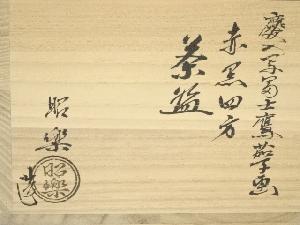 慶入写富士鷹茄子画
赤黒四方
茶盌
昭楽
造
昭樂